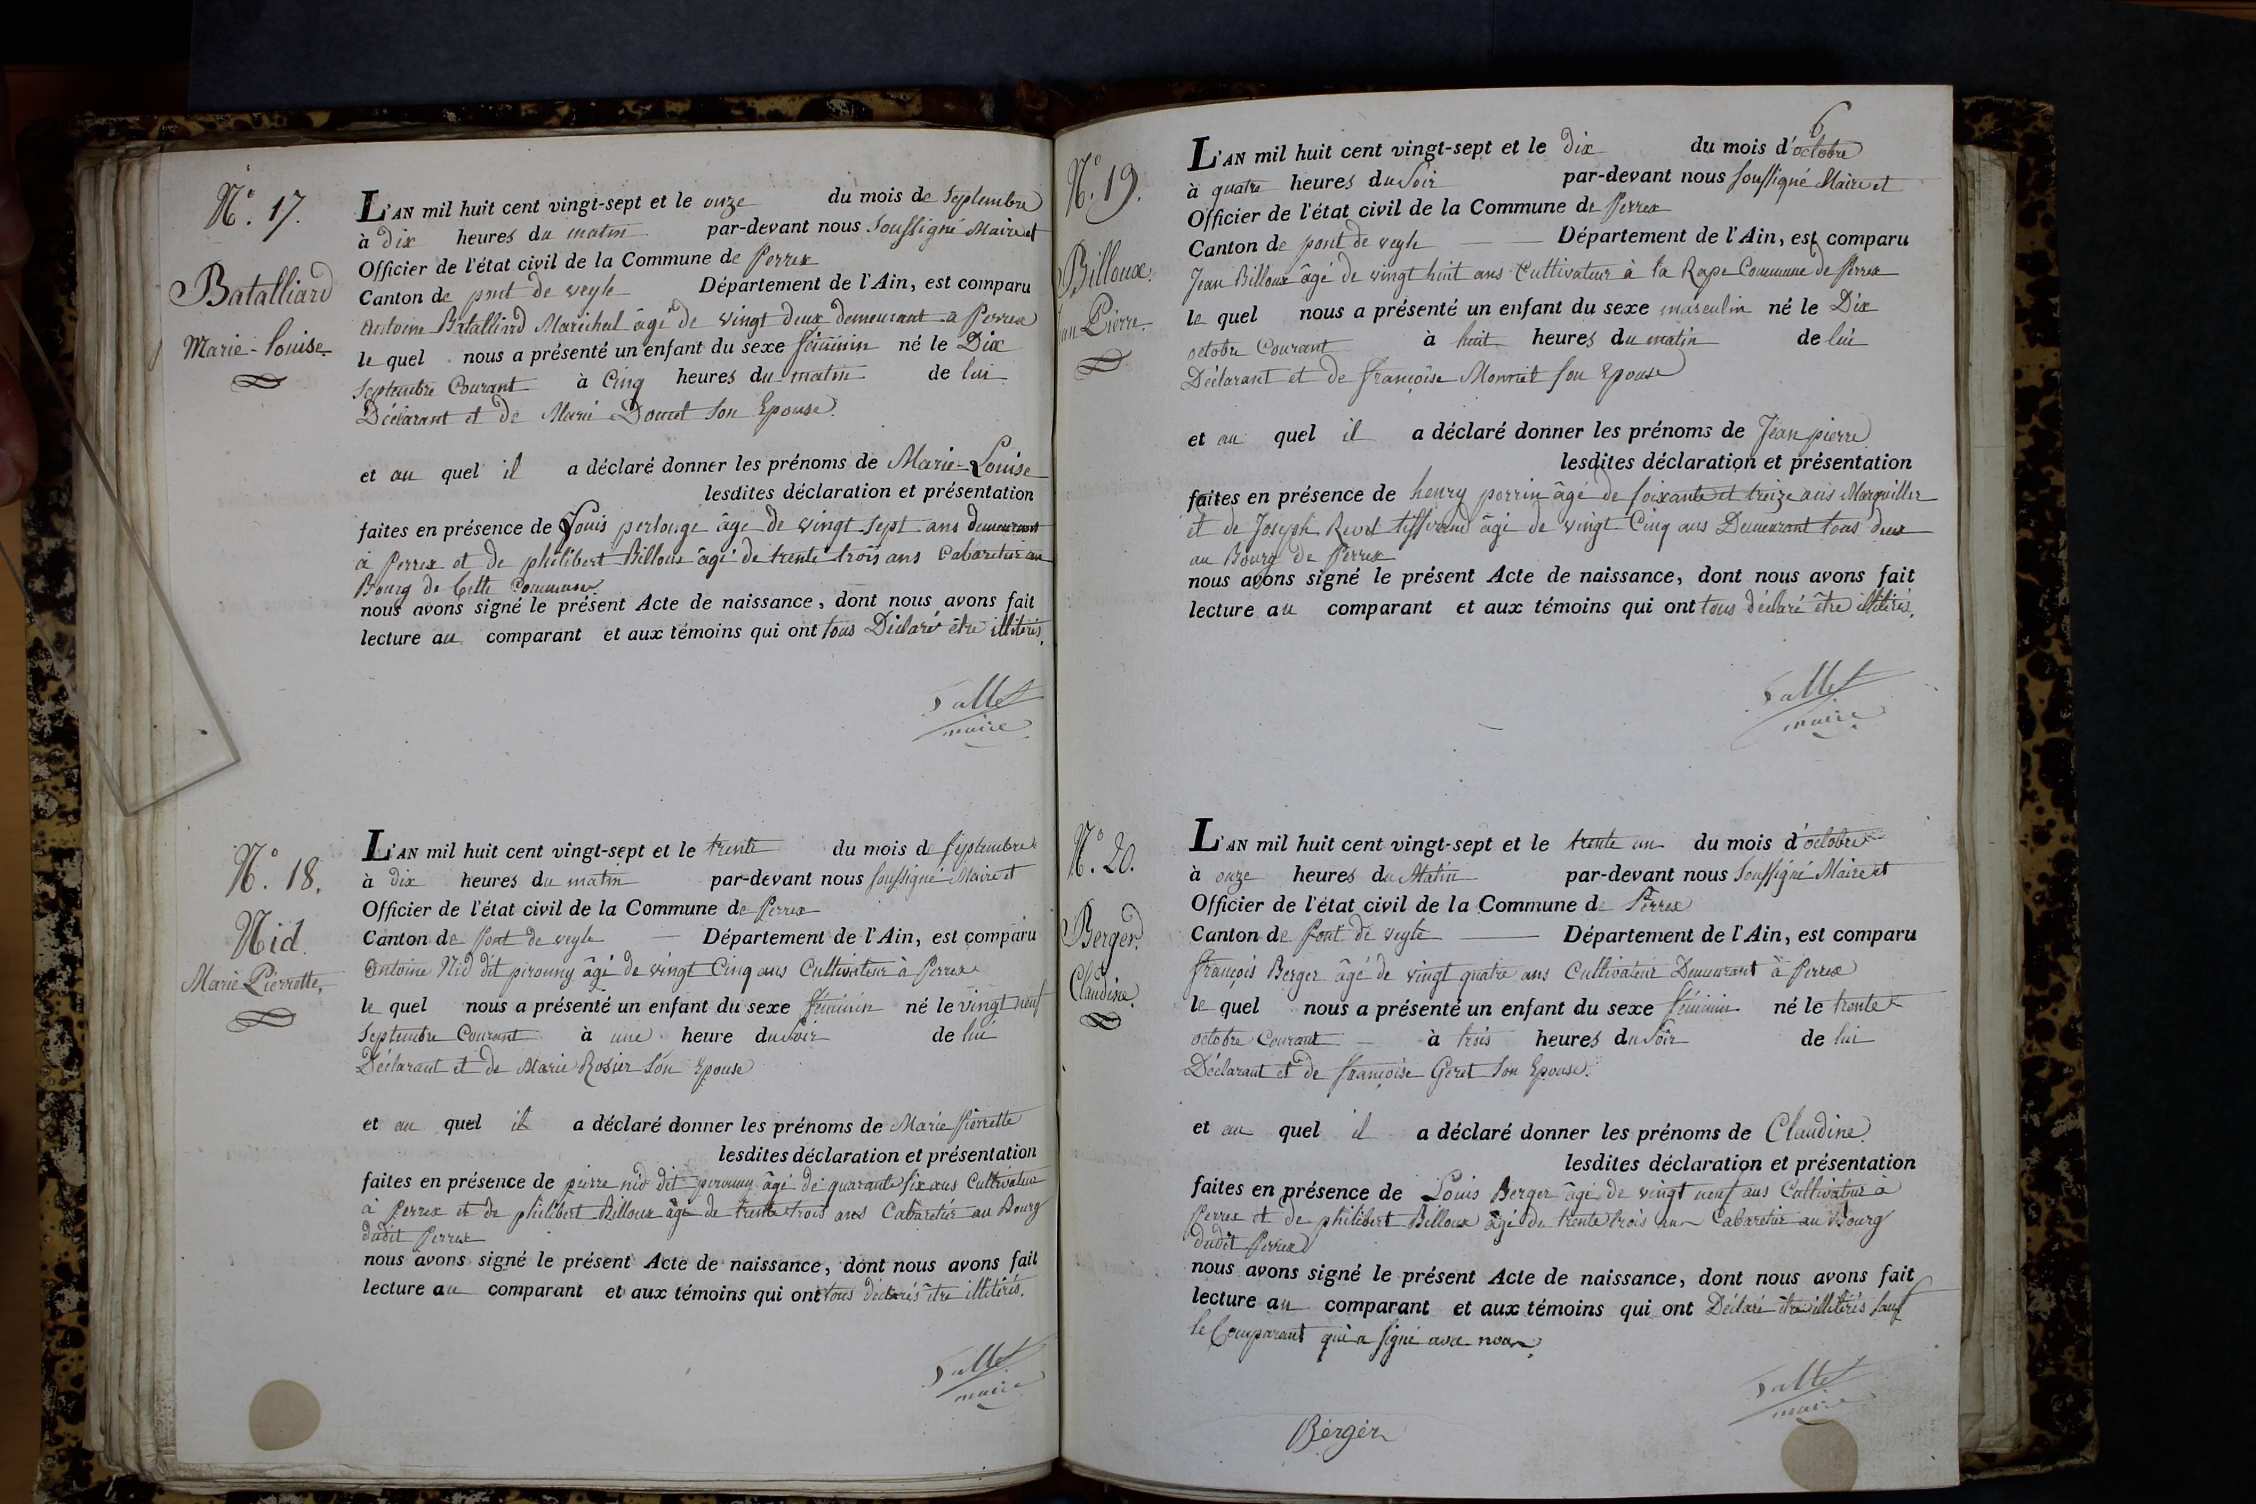 N.o 17.
Batalliard
Marie-Louise
L'AN mil huit cent vingt-sept et le onze du mois de Septembre
à dix heures du matin par-devant nous Soussigné Maire et
Officier de l'état civil de la Commune de Perrex
Canton de pont de veyle Département de l'Ain, est comparu
Antoine Batalliard Maréchal âgé de vingt deux demeurant a Perrex
le quel nous a présenté un enfant du sexe féminin né le Dix
Septembre Courant à Cinq heures du matin de lui
Déclarant et de Marie Doucet son Epouse.
et au quel il a déclaré donner les prénoms de Marie-Louise
lesdites déclaration et présentation
faites en présence de Louis perlonge âgé de vingt sept ans demeurant
à Perrex et de philibert Billoux âgé de trente trois ans Cabaretier au
Bourg de Cette Commune.
nous avons signé le présent Acte de naissance, dont nous avons fait
lecture au comparant et aux témoins qui ont tous Déclaré être illitérés.
maire
N.o 18.
Nid
Marie Pierrette.
L'AN mil huit cent vingt-sept et le trente du mois de Septembre
à dix heures du matin par-devant nous soussigné Maire et
Officier de l'état civil de la Commune de Perrex
Canton de Pont de veyle Département de l'Ain, est comparu
Antoine Nid dit pirouny âgé de vingt Cinq ans Cultivateur à Perrex
le quel nous a présenté un enfant du sexe féminin né le vingt neuf
Septembre Courant à une heure du Soir de lui
Déclarant et de Marie Rosier Son Epouse
et au quel il a déclaré donner les prénoms de Marie Pierrette
lesdites déclaration et présentation
faites en présence de pierre nid dit pirouny âgé de quarante six ans Cultivateur
à Perrex et de philibert Billoux âgé de trente trois ans Cabaretier au Bourg
dudit Perrex
nous avons signé le présent Acte de naissance, dont nous avons fait
lecture au comparant et aux témoins qui ont tous déclarés être illitérés.
maire
6
N.o 19.
Billoux.
Pierre.
L'AN mil huit cent vingt-sept et le dix du mois d'octobre
à quatre heures du Soir par-devant nous soussigné Maire et
Officier de l'état civil de la Commune de Perrex
Canton de pont de veyle Département de l'Ain, est comparu
Jean Billoux âgé de vingt huit ans Cultivateur à la Rape Commune de Perrex
le quel nous a présenté un enfant du sexe masculin né le Dix
octobre Courant à huit heures du matin de lui
Déclarant et de françoise Monnet son Epouse
et au quel il a déclaré donner les prénoms de Jean pierre
lesdites déclaration et présentation
faites en présence de henry perrin âgé de soixante et treize ans Marguillier
et de Joseph Revel tisserand âgé de vingt Cinq ans Demeurant tous deux
au Bourg de Perrex
nous avons signé le présent Acte de naissance, dont nous avons fait
lecture au comparant et aux témoins qui ont tous déclaré être illitérés.
maire
N.o 20.
Berger.
Claudine.
L'AN mil huit cent vingt-sept et le trente un du mois d'octobre
à onze heures du Matin par-devant nous Soussigné Maire et
Officier de l'état civil de la Commune de Perrex
Canton de Pont de veyle Département de l'Ain, est comparu
françois Berger âgé de vingt quatre ans Cultivateur Demeurant à Perrex
le quel nous a présenté un enfant du sexe féminin né le trente
octobre Courant à trois heures du Soir de lui
Déclarant et de françoise Geret Son Epouse.
et au quel il a déclaré donner les prénoms de Claudine.
lesdites déclaration et présentation
faites en présence de Louis Berger âgé de vingt neuf ans Cultivateur à
Perrex et de philibert Billoux âgé de trente trois ans Cabaretier au Bourg
dudit Perrex
nous avons signé le présent Acte de naissance, dont nous avons fait
lecture au comparant et aux témoins qui ont Déclaré être illitérés sauf
le Comparant qui a signé avec nous.
maire
Bérgér